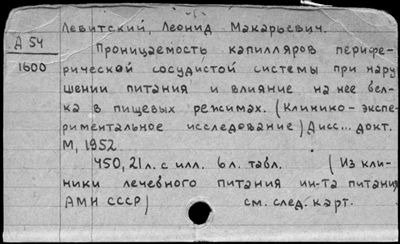 Левитский, Леонид Макарьевич.
Д 54
1600
Проницаемость капилляров перифе-
рической сосудистой системы при нару
шении питания и влияние на нее бел-
ка в пищевых режимах. (Клинико-экспе-
риментальное исследование) Дисс... докт.
М, 1952
450, 21 л. с илл. 6 л. табл. (Из кли-
ники лечебного питания ин-та питани
АМН СССР) см. след. карт.